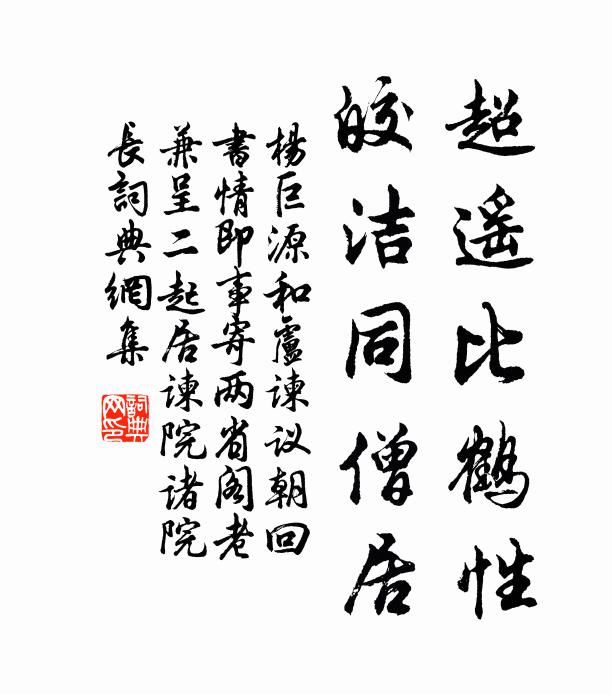 超遥比鹤性
皎洁同僧居
杨巨源和卢谏议朝回
书情即事寄两省阁老
兼呈二起居谏院诸院
长词典网集
词典
网印